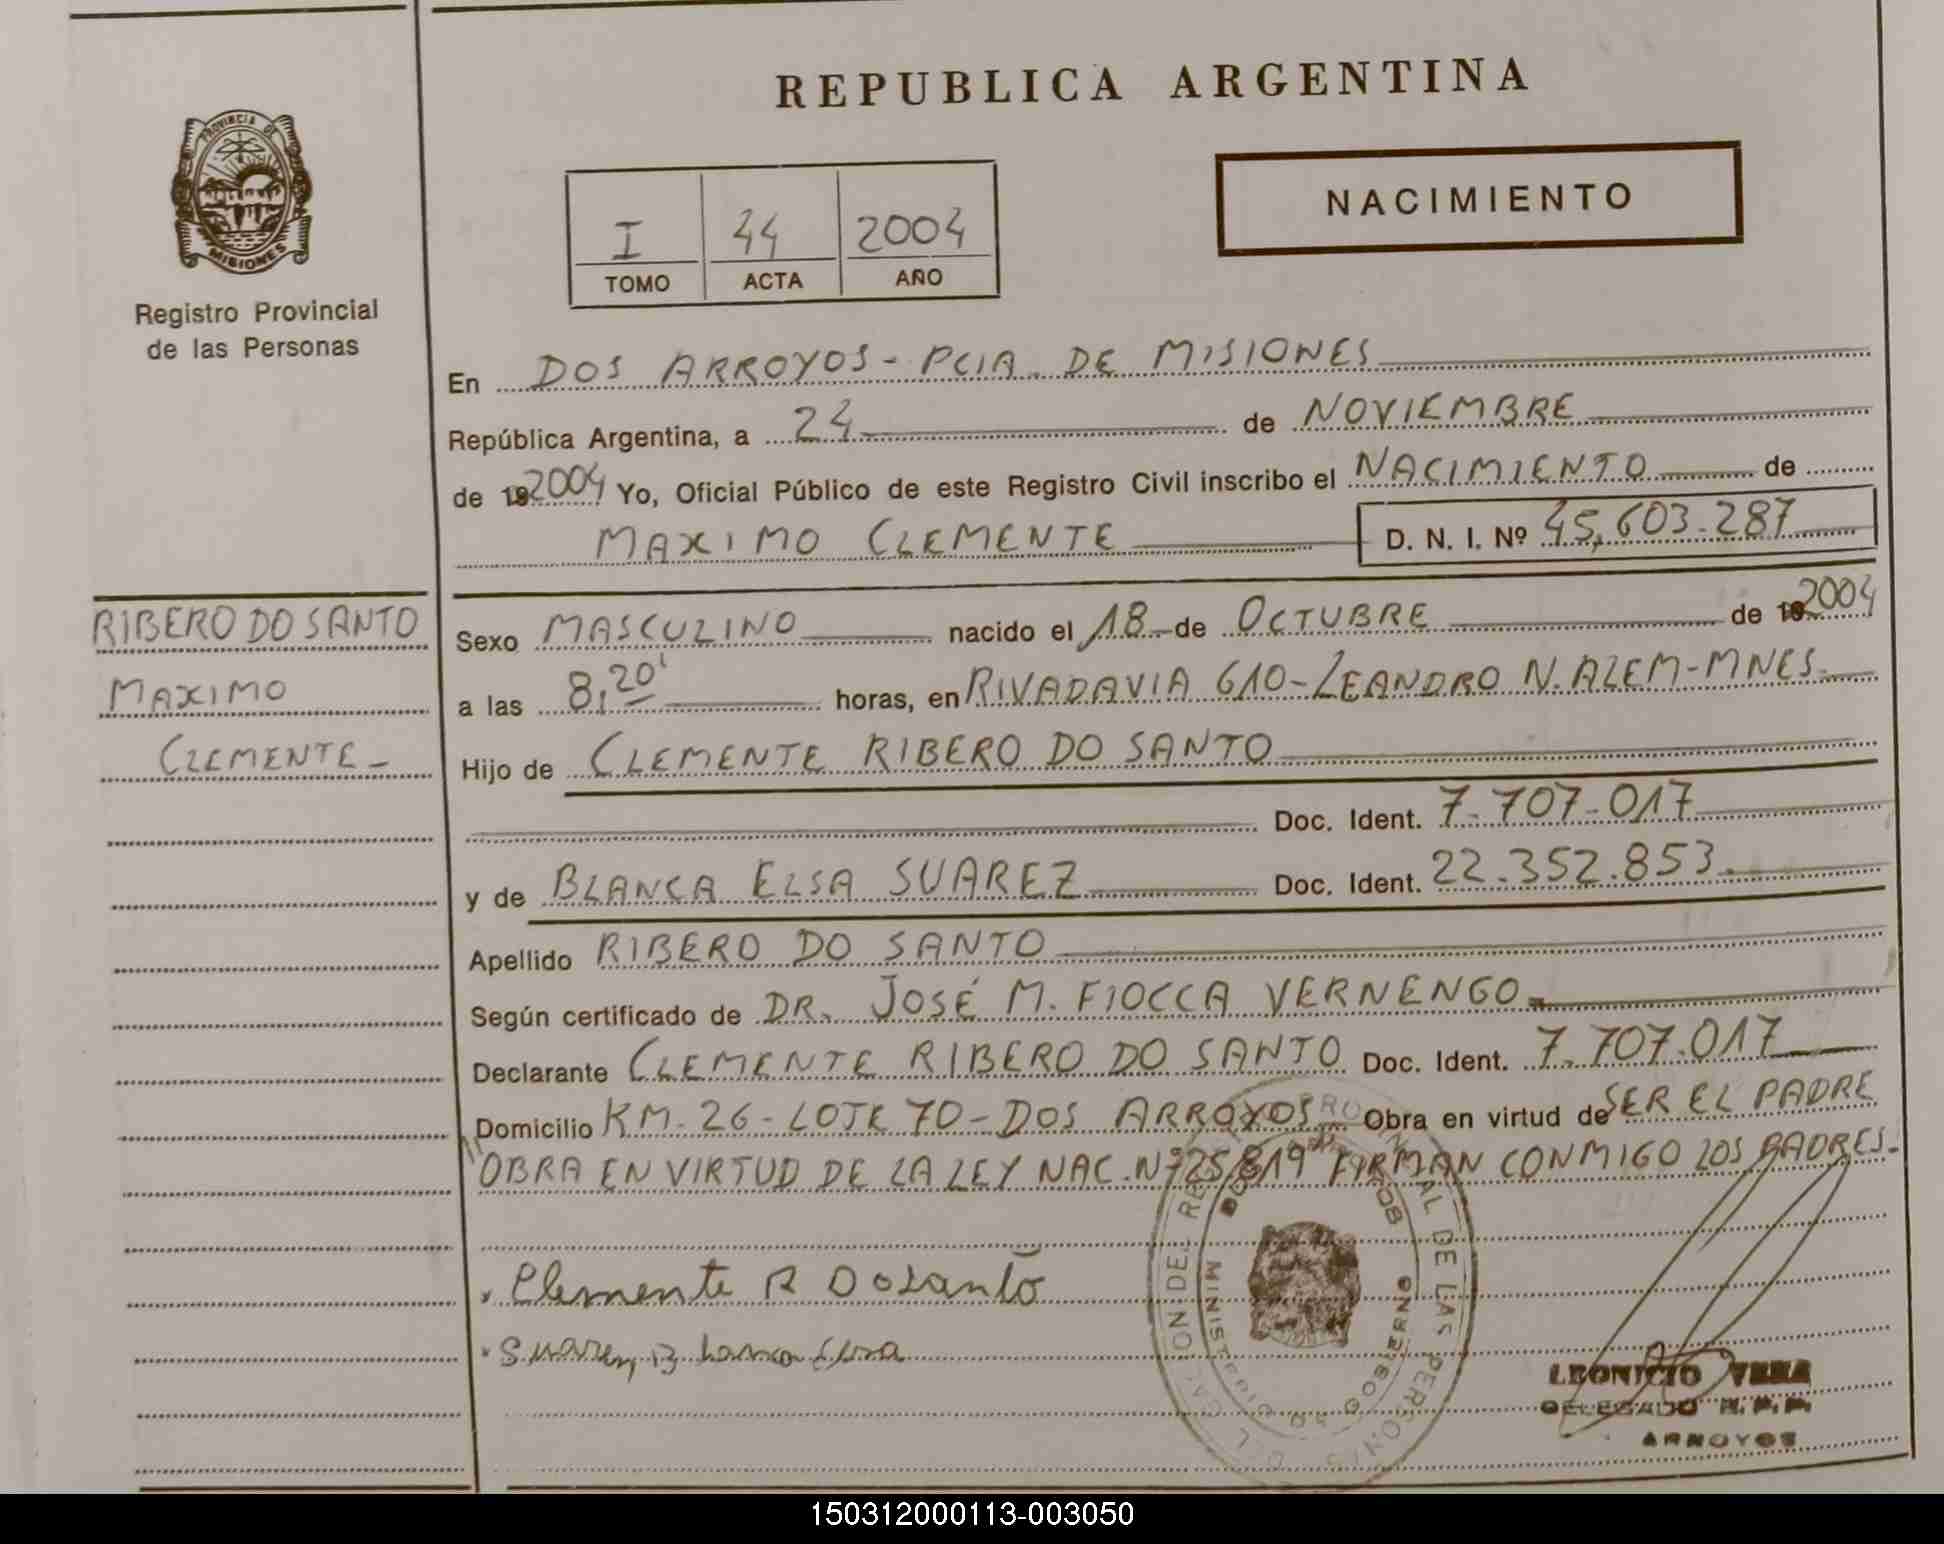 REPUBLICA ARGENTINA
PROVINCIA DE
MISIONES
Registro Provincial
de las Personas
I 44 2004
TOMO ACTA AÑO
NACIMIENTO
En DOS ARROYOS - PCIA. DE MISIONES
República Argentina, a 24 de NOVIEMBRE
de 192004 Yo, Oficial Público de este Registro Civil inscribo el NACIMIENTO de
MAXIMO CLEMENTE D. N. I. Nº 45,603.287
RIBERO DO SANTO
MAXIMO
CLEMENTE -
Sexo MASCULINO nacido el 18 de OCTUBRE de 192004
a las 8,20' horas, en RIVADAVIA 610 - LEANDRO N. ALEM - MNES.
Hijo de CLEMENTE RIBERO DO SANTO
Doc. Ident. 7.707.017
y de BLANCA ELSA SUAREZ Doc. Ident. 22.352.853.
Apellido RIBERO DO SANTO
Según certificado de DR. JOSÉ M. FIOCCA VERNENGO
Declarante CLEMENTE RIBERO DO SANTO Doc. Ident. 7.707.017
Domicilio KM. 26 - LOTE 70 - DOS ARROYOS Obra en virtud de SER EL PADRE
"OBRA EN VIRTUD DE LA LEY NAC. Nº 25.819" FIRMAN CONMIGO LOS PADRES.-
Clemente R Dosanto
Suarez Blanca Elsa
MINISTERIO DE GOBIERNO
LEONICIO VERA
DELEGADO R. P. P.
ARROYOS
150312000113-003050